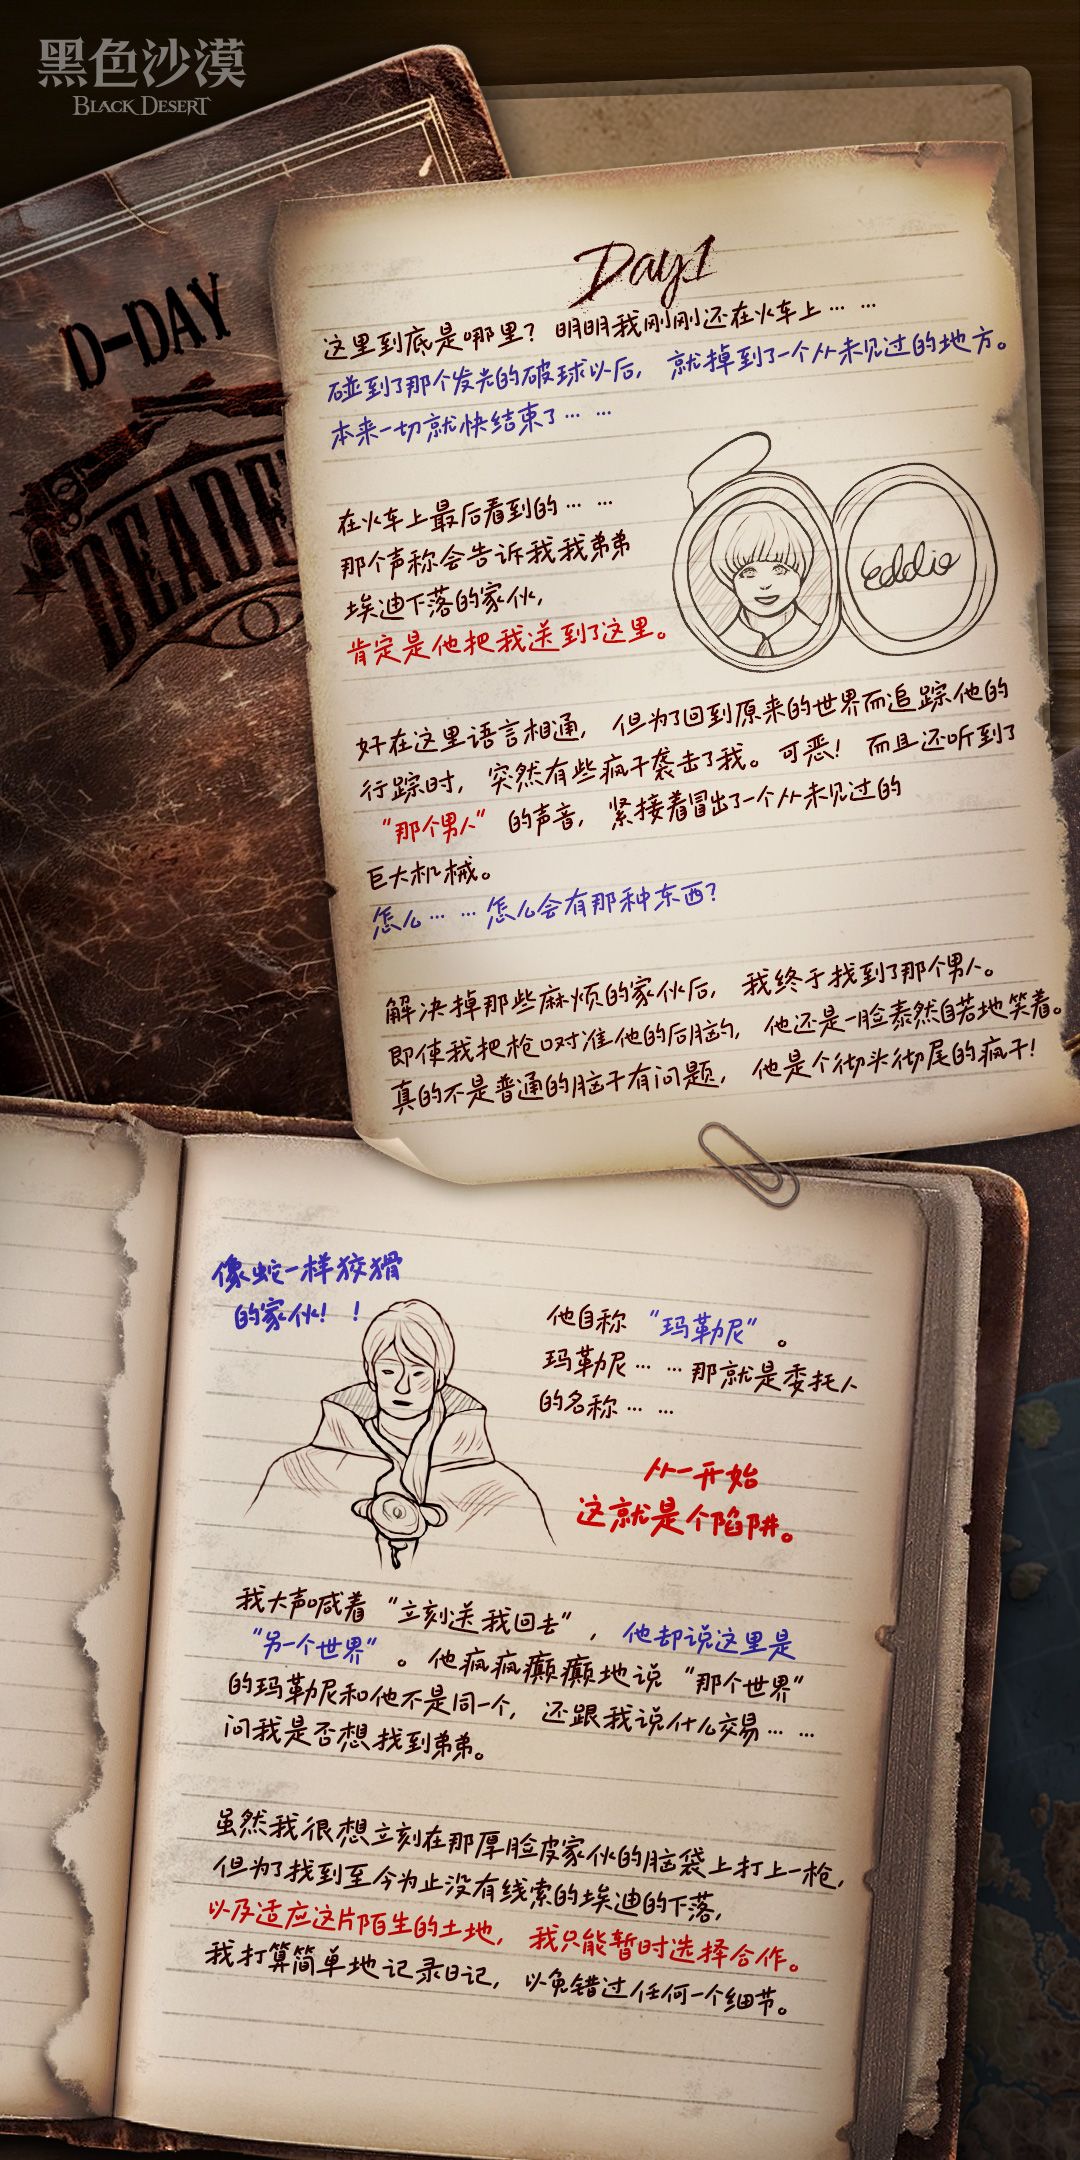 黑色沙漠
BLACK DESERT
D-DAY
Day1
这里到底是哪里？明明我刚刚还在火车上……
碰到了那个发光的破球以后，就掉到了一个从未见过的地方。
本来一切就快结束了……
在火车上最后看到的……
那个声称会告诉我我弟弟
埃迪下落的家伙，
肯定是他把我送到了这里。
Eddie
好在这里语言相通，但为了回到原来的世界而追踪他的
行踪时，突然有些疯子袭击了我。可恶！而且还听到了
“那个男人”的声音，紧接着冒出了一个从未见过的
巨大机械。
怎么……怎么会有那种东西？
解决掉那些麻烦的家伙后，我终于找到了那个男人。
即使我把枪口对准他的后脑勺，他还是一脸泰然自若地笑着。
真的不是普通的脑子有问题，他是个彻头彻尾的疯子！
像蛇一样狡猾
的家伙！！
他自称“玛勒尼”。
玛勒尼……那就是委托人
的名称……
从一开始
这就是个陷阱。
我大声喊着“立刻送我回去”，他却说这里是
“另一个世界”。他疯疯癫癫地说“那个世界”
的玛勒尼和他不是同一个，还跟我说什么交易……
问我是否想找到弟弟。
虽然我很想立刻在那厚脸皮家伙的脑袋上打上一枪，
但为了找到至今为止没有线索的埃迪的下落，
以及适应这片陌生的土地，我只能暂时选择合作。
我打算简单地记录日记，以免错过任何一个细节。